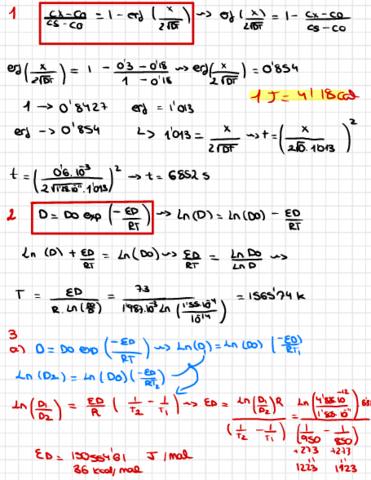 1 Cx-Co/Cs-Co = 1 - erf (x/2√Dt) → erf (x/2√Dt) = 1 - Cx-Co/Cs-Co
erf (x/2√Dt) = 1 - 0'3-0'18/1-0'18 → erf (x/2√Dt) = 0'854
1 J = 4'18 cal
1 → 0'8427 erf = 1'013
erf → 0'854 ↳ 1'013 = x/2√Dt → t = (x/2√D·1'013)²
t = (0'6·10⁻³/2√·1'013)² → t = 6852 s
2 D = Do exp (-ED/RT) → Ln(D) = Ln(Do) - ED/RT
Ln (D) + ED/RT = Ln(Do) → ED/RT = Ln Do/Ln D →
T = ED/R·Ln() = 73/1'987·10⁻³ Ln () = 1565'74 K
3
a) D = Do exp (-ED/RT) → Ln(D₁) = Ln(Do) (-ED/RT₁)
Ln(D₂) = Ln(Do) (-ED/RT₂)
Ln(D₁/D₂) = ED/R (1/T₂ - 1/T₁) → ED = Ln(D₁/D₂)R/(1/T₂ - 1/T₁) = Ln()/(1/950 - 1/850)
+273 +273
1223 1123
ED = J/mol
36 kcal/mol